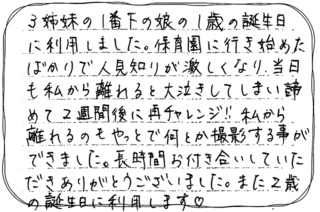 3姉妹の1番下の娘の1歳の誕生日
に利用しました。保育園に行き始めた
ばかりで人見知りが激しくなり、当日
も私から離れると大泣きしてしまい諦
めて2週間後に再チャレンジ!!私から
離れるのもやっとで何とか撮影する事が
できました。長時間お付き合いしていた
だきありがとうございました。また2歳
の誕生日に利用します♡